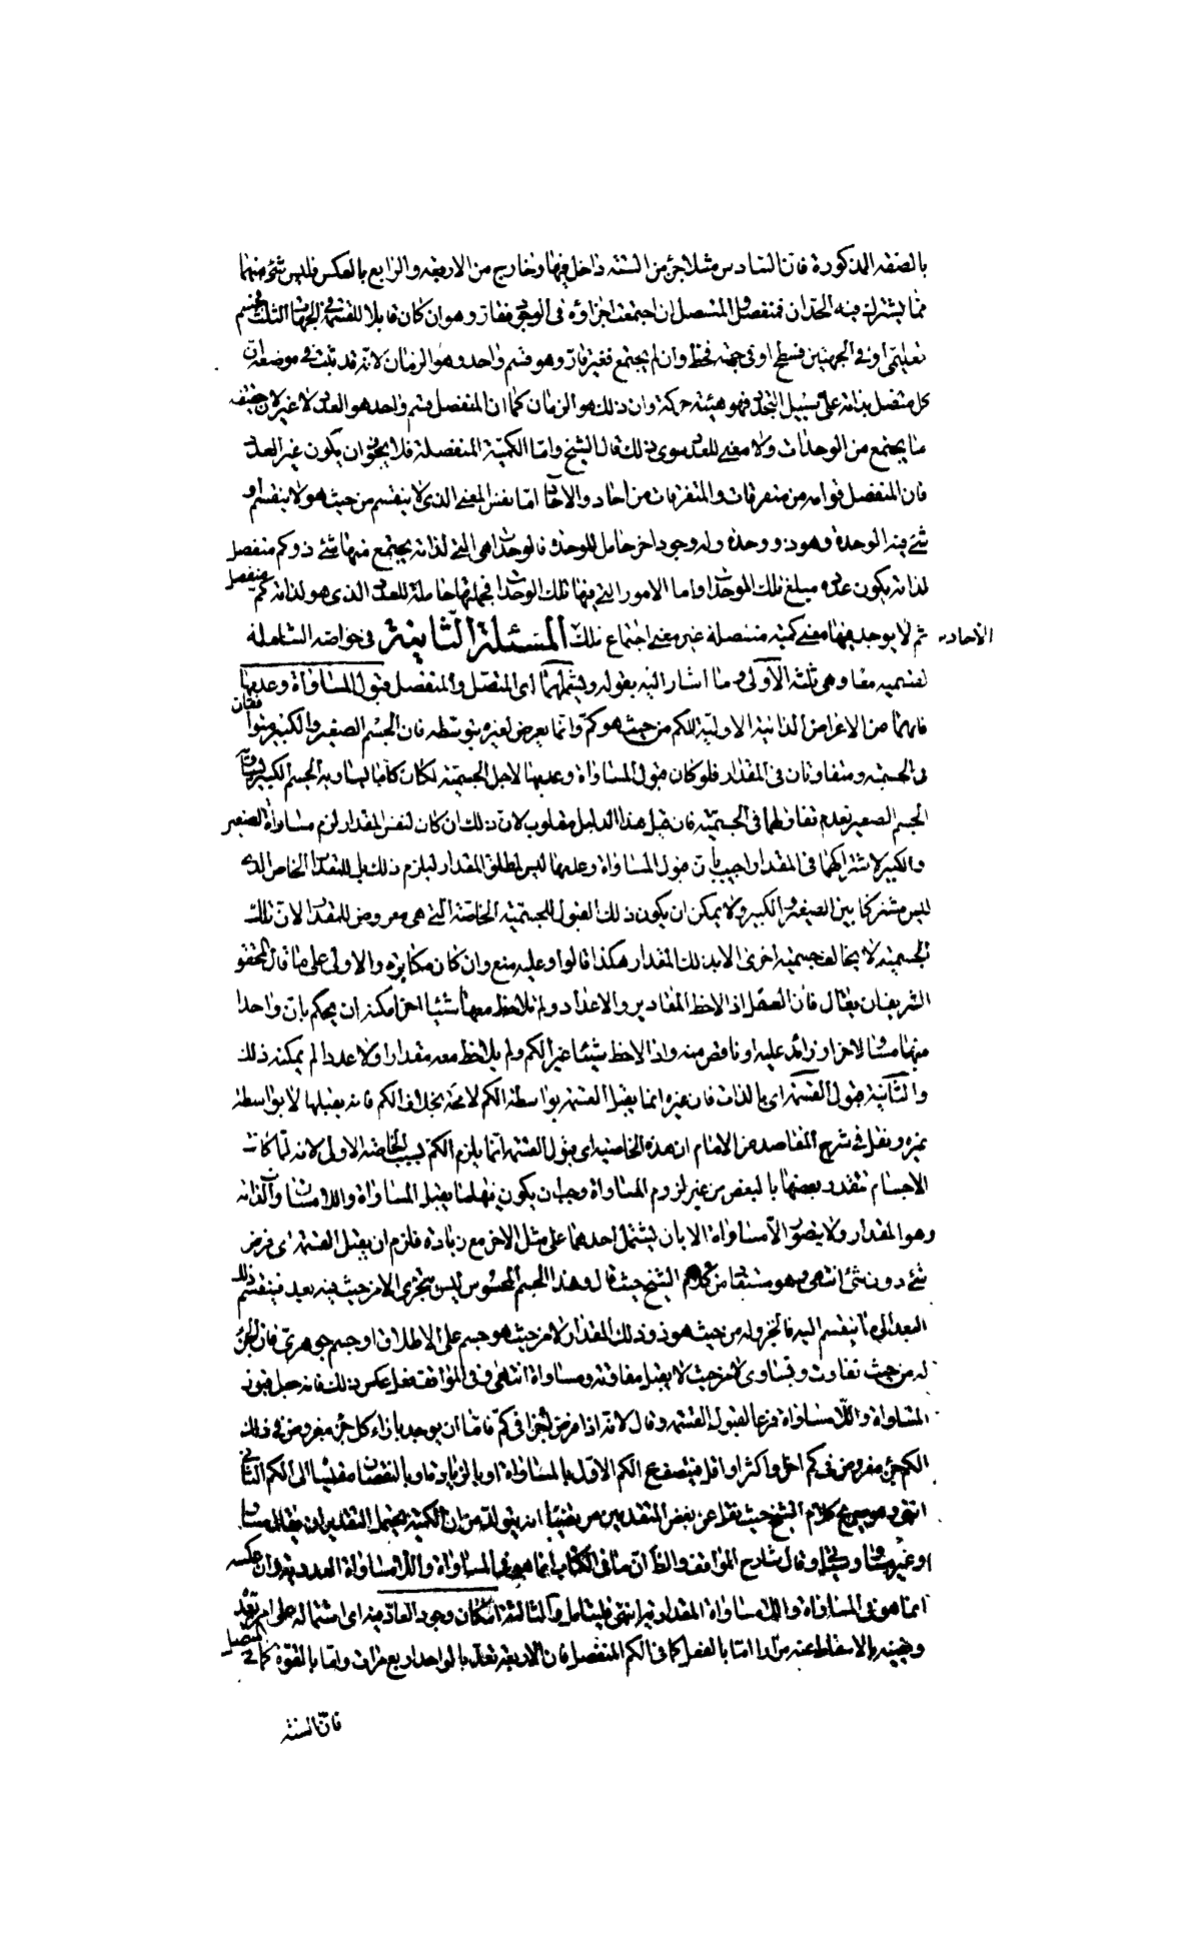 بالصفة المذكورة فان السادس مثلا جزء من الستة داخل فيها وخارج من الاربعة والرابع بالعكس فليس شئ منهما
مما يشترك فيه الحدان فمنفصل والمتصل ان اجتمعت اجزاؤه فى الوجود فقار وهو ان كان قابلا للقسمة فى الجهات الثلث فجسم
تعليمى او فى الجهتين فسطح او فى جهة فخط وان لم يجتمع فغير قار وهو قسم واحد وهو الزمان لانه قد ثبت فى موضعه ان
كل متصل بذاته على سبيل التجدد فهو هيئة حركة وان ذلك هو الزمان كما ان المنفصل قسم واحد هو العدد لا غير لان حقيقته
ما يجتمع من الوحدات ولا معنى للعدد سوى ذلك قال الشيخ واما الكمية المنفصلة فلا يجوز ان يكون غير العدد
فان المنفصل قوامه من متفرقات والمتفرقات من احاد والاحاد اما نفس المعنى الذى لا ينقسم من حيث هو لا ينقسم او
شئ فيه الوحدة وهو ذو وحدة وله وجود اخر حامل للوحدة فالوحدات هى التى لذاته يجتمع منها شئ ذو كم منفصل
لذاته يكون عدده مبلغ تلك الوحدات واما الامور التى فيها تلك الوحدات فجملتها حاملة للعدد الذى هو لذاته كم منفصل
ثم لا يوجد فيها معنى كمية منفصلة غير معنى اجتماع تلك الاحاد المسئلة الثانية فى خواصه الشاملة
لقسميه معا وهى ثلثة الاولى ما اشار اليه بقوله ويشملهما اى المتصل والمنفصل قبول المساواة وعدمها
فانهما من الاعراض الذاتية الاولية للكم من حيث هو كم وانما يعرض لغيره بتوسطه فان الجسم الصغير والكبير متوافقان
فى الجسمية ومتفاوتان فى المقدار فلو كان قبول المساواة وعدمها لاجل الجسمية لكان كلما يساويه الجسم الكبير يساويه
الجسم الصغير لعدم تفاوتهما فى الجسمية فان قيل هذا الدليل مقلوب لان ذلك ان كان لنفس المقدار لزم مساواة الصغير
والكبير لاشتراكهما فى المقدار اجيب بان قبول المساواة وعدمها ليس لمطلق المقدار ليلزم ذلك بل للمقدار الخاص الذى
ليس مشتركا بين الصغير والكبير ولا يمكن ان يكون ذلك القبول للجسمية الخاصة التى هى معروض للمقدار لان تلك
الجسمية لا يخالف جسمية اخرى الا بذلك المقدار هكذا قالوا وعليه منع وان كان مكابرة والاولى على ما قال المحقق
الشريف ان يقال فان العقل اذا لاحظ المقادير والاعداد ولم يلاحظ معها شيئا اخر امكنه ان يحكم بان واحدا
منهما مساو لاخر او زائد عليه او ناقص منه واذا لاحظ شيئا غير الكم ولم يلاحظ معه مقدارا ولا عددا لم يمكنه ذلك
والثانية قبول القسمة اى بالذات فان غيره انما يقبل القسمة بواسطة الكم لا محة بخلاف الكم فانه يقبلها لا بواسطة
غيره ونقل فى شرح المقاصد عن الامام ان هذه الخاصية اى قبول القسمة انما يلزم الكم بسبب الخاصة الاولى لانه لما كانت
الاجسام تتقدر بعضها بالبعض من غير لزوم المساواة وجب ان يكون فيها ما يقبل المساواة واللامساواة لذاته
وهو المقدار ولا يتصور اللامساواة الا بان يشتمل احدهما على مثل الاخر مع زيادة فلزم ان يقبل القسمة اى فرض
شئ دون شئ انتهى وهو مستفاد من كلام الشيخ حيث قال وهذا الجسم المحسوس ليس يتجزى الا من حيث فيه بعد فينقسم ذلك
البعد الى ما ينقسم اليه فالجزء له من حيث هو ذو ذلك المقدار لا من حيث هو جسم على الاطلاق او جسم جوهرى فان الجزء
له من حيث تفاوت وتساوى لا من حيث لا يقبل مفاوتة ومساواة انتهى وفى المواقف جعل عكس ذلك فانه جعل قبول
المساواة واللامساواة فرعا لقبول القسمة وقال لانه اذا فرض اجزاء فى كم فاما ان يوجد بازاء كل جزء مفروض فى ذلك
الكم جزء مفروض فى كم اخر او اكثر او اقل فيتصف الكم الاول بالمساواة او بالزيادة او بالنقصان مقيسا الى الكم الثانى
او غير مساو وقال شارح المواقف والظ ان ما فى الكتاب انما هو فى المساواة واللامساواة العددية وان عكسه
انما هو فى المساواة واللامساواة المقدارية انتهى فليتامل والثالثة امكان وجود العاد فيه اى اشتماله على امر يعده
ويفنيه بالاسقاط عنه مرارا اما بالفعل كما فى الكم المنفصل فان الاربعة تعد بالواحد اربع مرات واما بالقوة كما فى المتصل
فان السنة